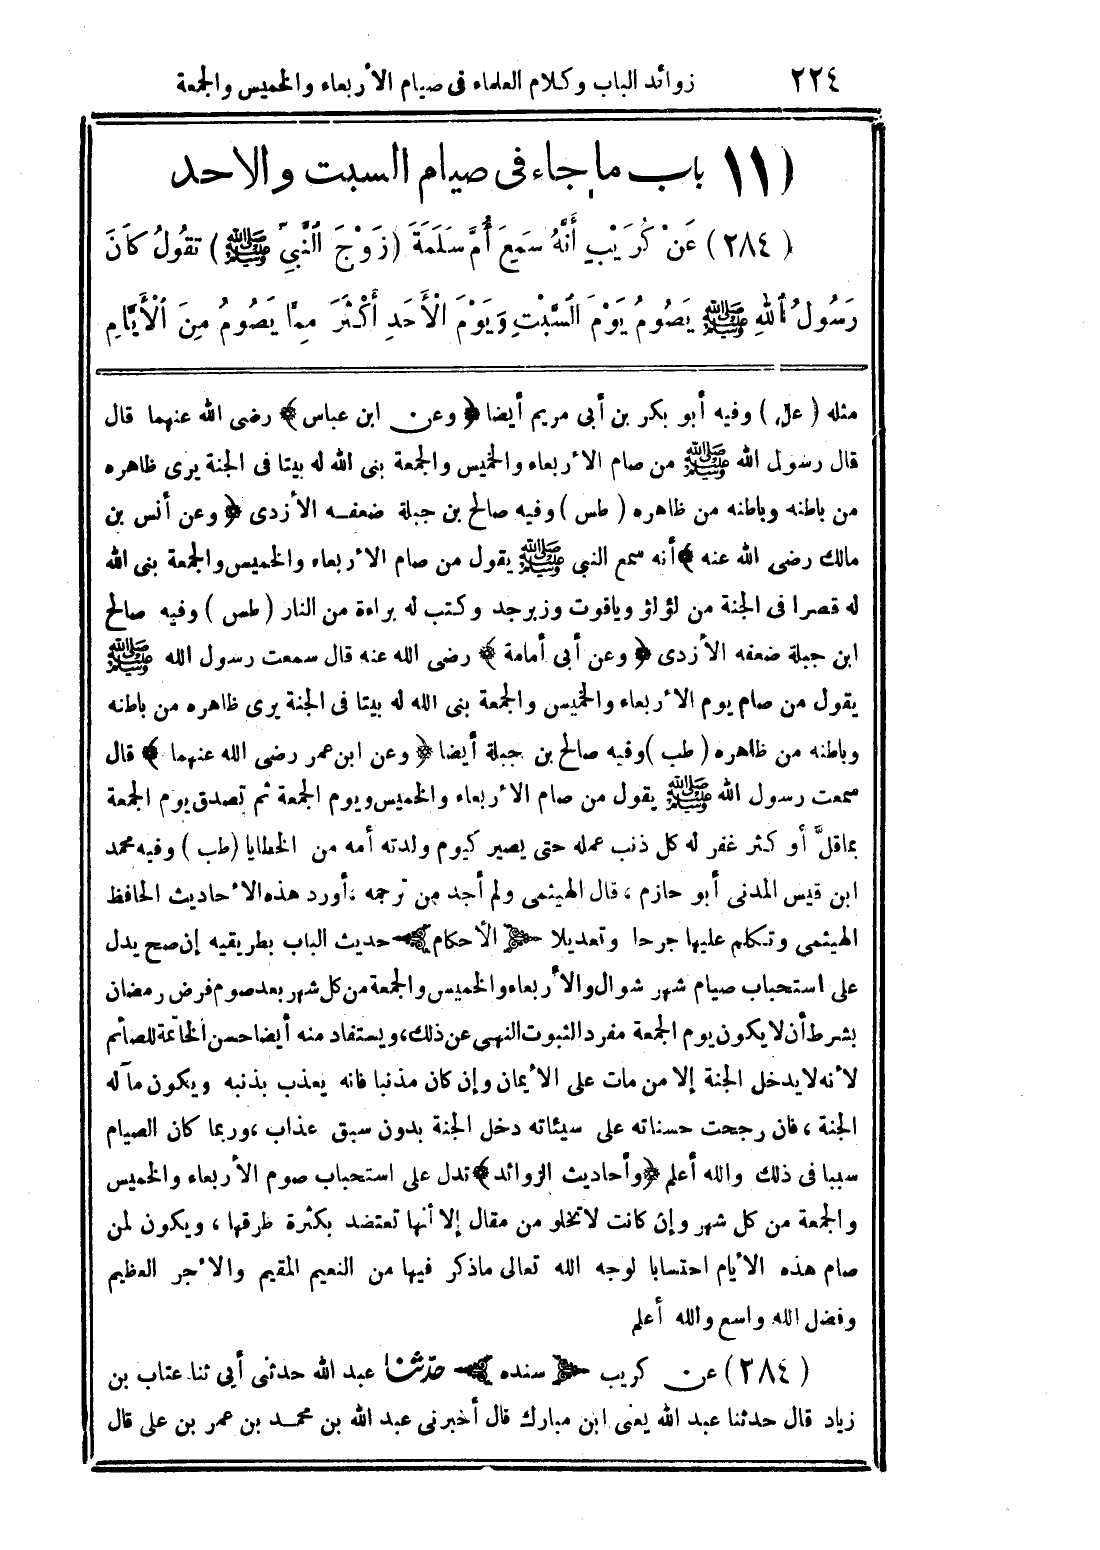 ٢٢٤ زوائد الباب وكلام العلماء فى صيام الأربعاء والخميس والجمعة
(١١ باب ما جاء فى صيام السبت والاحد
(٢٨٤) عَنْ كُرَيْبٍ أَنَّهُ سَمِعَ أُمَّ سَلَمَةَ (زَوْجَ ٱلنَّبِيِّ ﷺ) تَقُولُ كَانَ
رَسُولُ ٱللهِ ﷺ يَصُومُ يَوْمَ السَّبْتِ وَيَوْمَ الْأَحَدِ أَكْثَرَ مِمَّا يَصُومُ مِنَ ٱلْأَيَّامِ
مثله (عل) وفيه أبو بكر بن أبى مريم أيضا ﴿وعن ابن عباس﴾ رضى الله عنهما قال
قال رسول الله ﷺ من صام الأربعاء والخميس والجمعة بنى الله له بيتا فى الجنة يرى ظاهره
من باطنه وباطنه من ظاهره (طس) وفيه صالح بن جبلة ضعفه الأزدى ﴿وعن أنس بن
مالك رضى الله عنه﴾ أنه سمع النبي ﷺ يقول من صام الأربعاء والخميس والجمعة بنى الله
له قصرا فى الجنة من لؤلؤ وياقوت وزبرجد وكتب له براءة من النار (طس) وفيه صالح
ابن جبلة ضعفه الأزدى ﴿وعن أبى أمامة﴾ رضى الله عنه قال سمعت رسول الله ﷺ
يقول من صام يوم الأربعاء والخميس والجمعة بنى الله له بيتا فى الجنة يرى ظاهره من باطنه
وباطنه من ظاهره (طب) وفيه صالح بن جبلة أيضا ﴿وعن ابن عمر رضى الله عنهما﴾ قال
سمعت رسول الله ﷺ يقول من صام الأربعاء والخميس ويوم الجمعة ثم تصدق يوم الجمعة
بماقلَّ أو كثر غفر له كل ذنب عمله حتى يصير كيوم ولدته أمه من الخطايا (طب) وفيه محمد
ابن قيس المدنى أبو حازم، قال الهيثمى ولم أجد من ترجمه، أورد هذه الأحاديث الحافظ
الهيثمى وتكلم عليها جرحا وتعديلا ﴿الأحكام﴾ حديث الباب بطريقيه إن صح يدل
على استحباب صيام شهر شوال والأربعاء والخميس والجمعة من كل شهر بعد صوم فرض رمضان
بشرط أن لا يكون يوم الجمعة مفردا لثبوت النهى عن ذلك، ويستفاد منه أيضا حسن الخاتمة للصائم
لأنه لا يدخل الجنة إلا من مات على الأيمان وإن كان مذنبا فانه يعذب بذنبه ويكون مآله
الجنة، فان رجحت حسناته على سيئاته دخل الجنة بدون سبق عذاب، وربما كان الصيام
سببا فى ذلك والله أعلم ﴿وأحاديث الزوائد﴾ تدل على استحباب صوم الأربعاء والخميس
والجمعة من كل شهر وإن كانت لا تخلو من مقال إلا أنها تعتضد بكثرة طرقها، ويكون لمن
صام هذه الأيام احتسابا لوجه الله تعالى ماذكر فيها من النعيم المقيم والأجر العظيم
وفضل الله واسع والله أعلم
(٢٨٤) عن كريب ﴿سنده﴾ حدّثنا عبد الله حدثنى أبى ثنا عتاب بن
زياد قال حدثنا عبد الله يعنى ابن مبارك قال أخبرنى عبد الله بن محمد بن عمر بن على قال